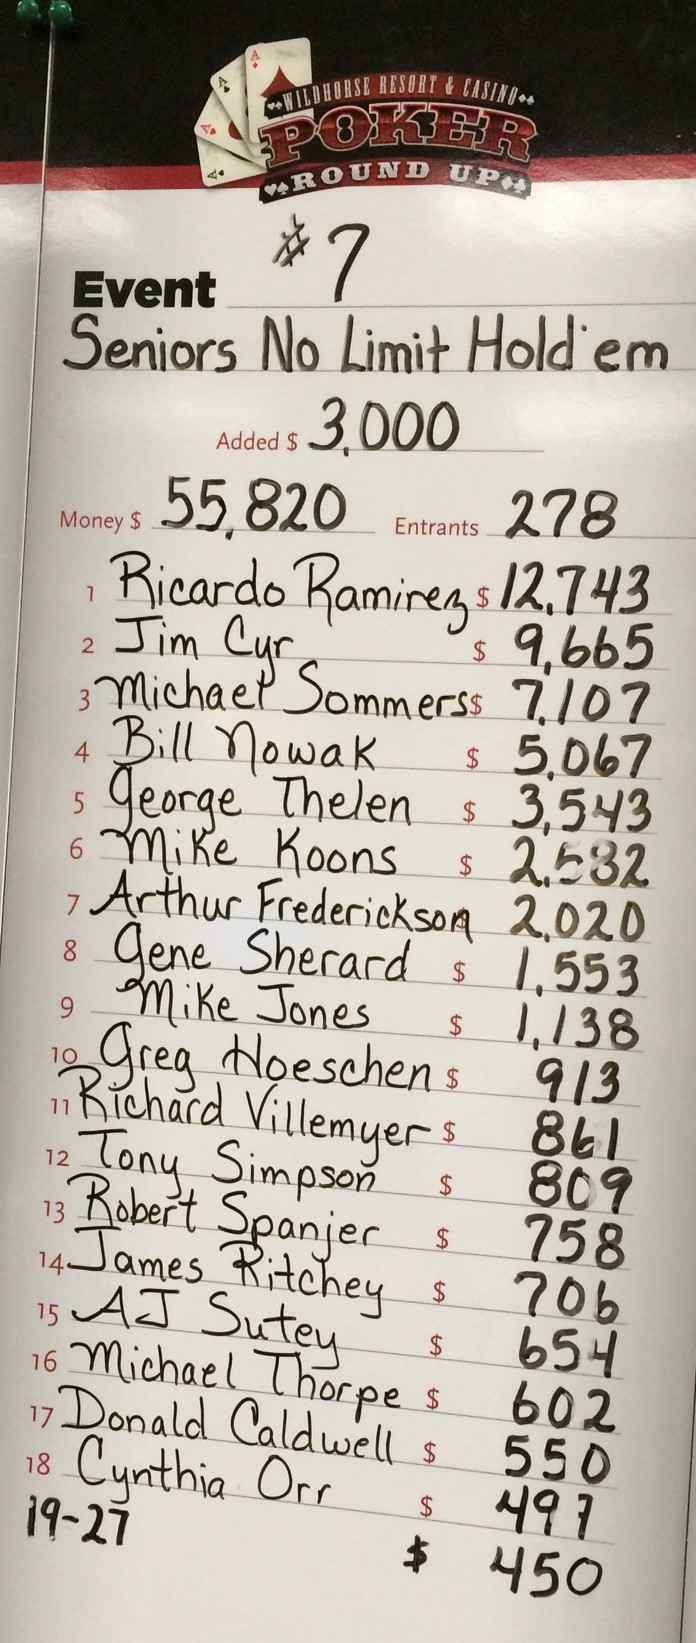 WILDHORSE RESORT & CASINO
POKER
ROUND UP
Event #7
Seniors No Limit Hold'em
Added $ 3,000
Money $ 55,820 Entrants 278
1 Ricardo Ramirez $ 12,743
2 Jim Cyr $ 9,665
3 Michael Sommers $ 7,107
4 Bill Nowak $ 5,067
5 George Thelen $ 3,543
6 Mike Koons $ 2,582
7 Arthur Frederickson 2,020
8 Gene Sherard $ 1,553
9 Mike Jones $ 1,138
10 Greg Hoeschen $ 913
11 Richard Villemyer $ 861
12 Tony Simpson $ 809
13 Robert Spanjer $ 758
14 James Ritchey $ 706
15 AJ Sutey $ 654
16 Michael Thorpe $ 602
17 Donald Caldwell $ 550
18 Cynthia Orr $ 497
19-27 $ 450